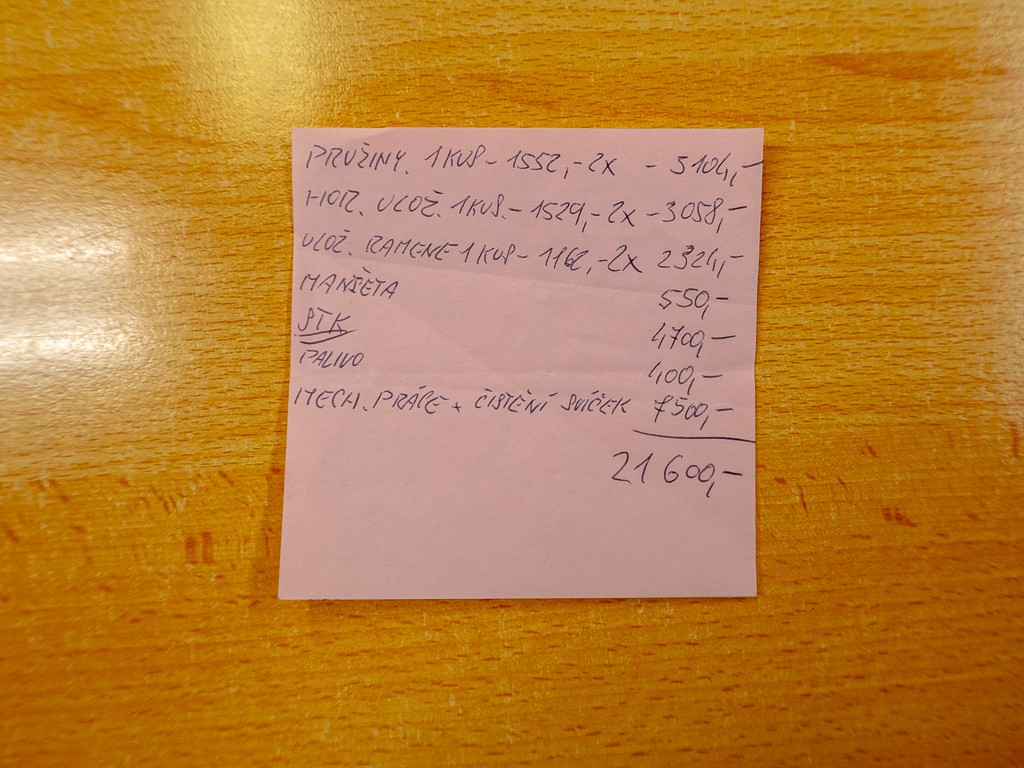 PRUŽINY. 1KUS - 1552,- 2X - 3104,-
HOR. ULOŽ. 1KUS. - 1529,- 2X - 3058,-
ULOŽ. RAMENE 1KUS - 1162,- 2X 2324,-
MANŠETA 550,-
STK 4700,-
PALIVO 400,-
MECH. PRÁCE + ČISTĚNÍ SVÍČEK 7500,-
21 600,-